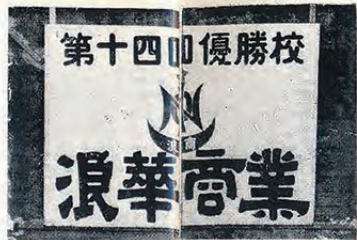 第十四回優勝校
浪商
浪華商業